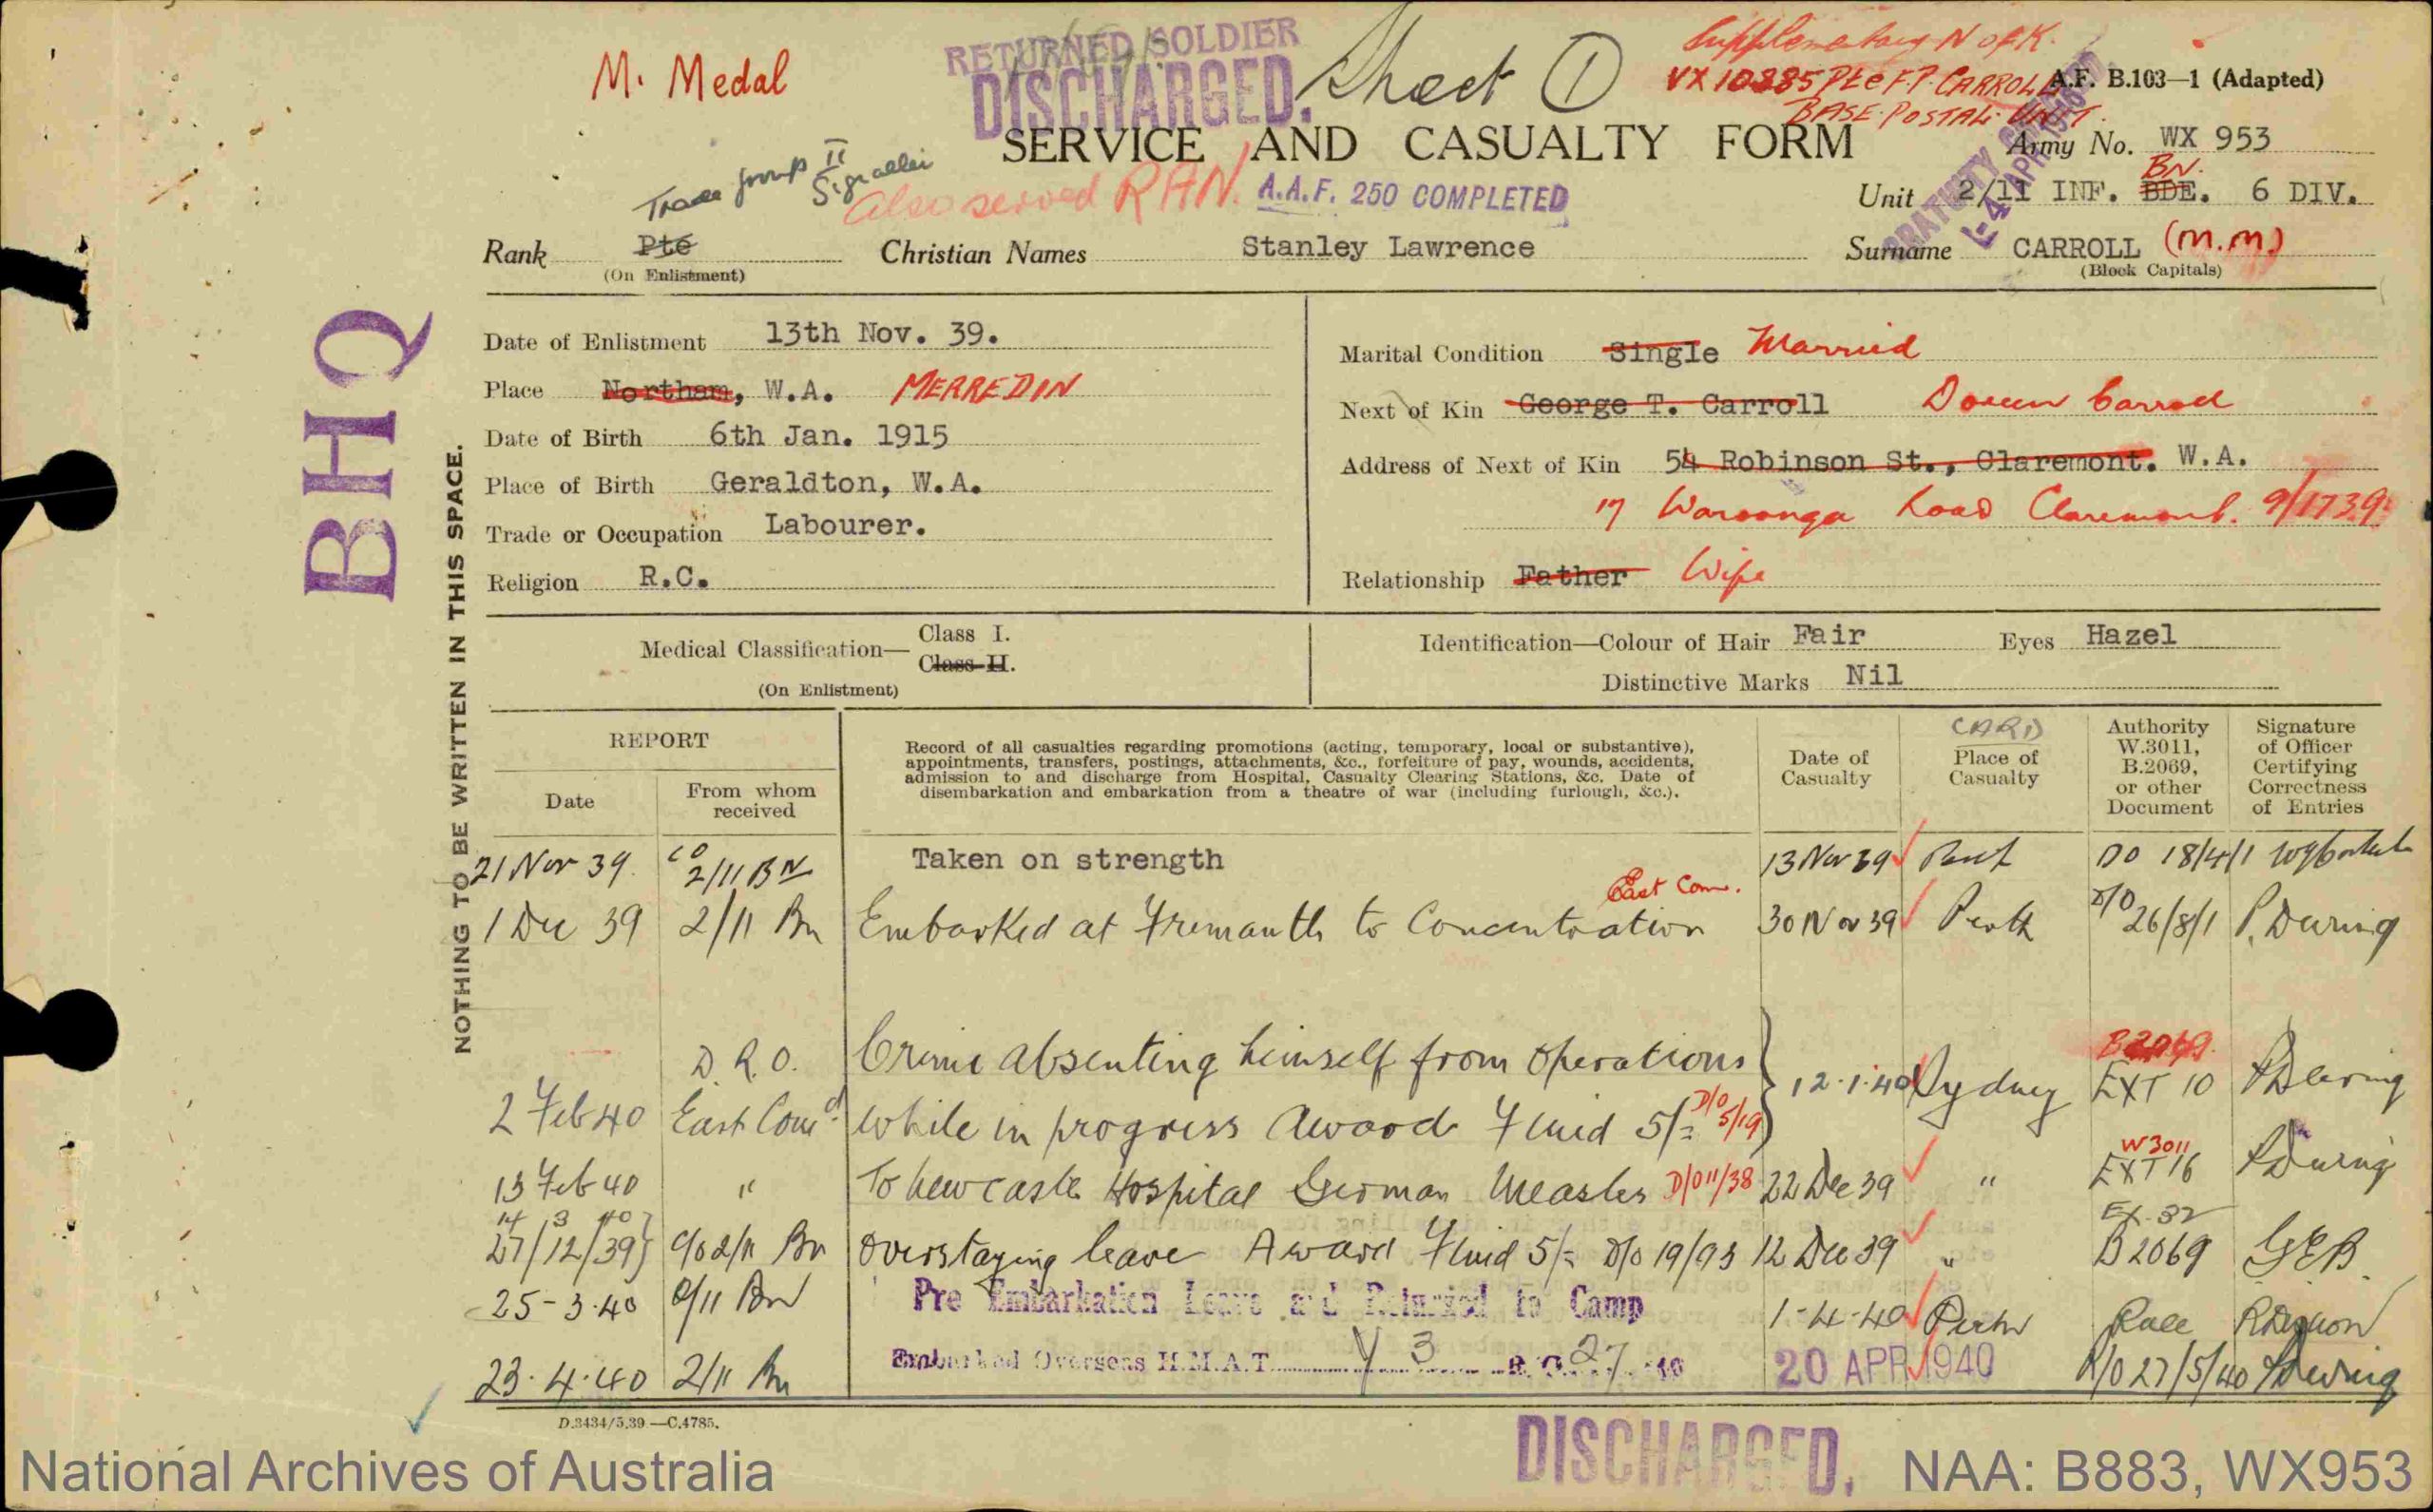 M. Medal
RETURNED SOLDIER
DISCHARGED.
Sheet 1
Supplementary N of K.
VX 10885 Pte F.P. CARROLL
BASE POSTAL UNIT.
A.F. B.103—1 (Adapted)
SERVICE AND CASUALTY FORM
Army No. WX 953
Trade group II Signaller
Also served RAN.
A.A.F. 250 COMPLETED
BN.
Unit 2/11 INF. BDE. 6 DIV.
Rank Pte
(On Enlistment)
Christian Names Stanley Lawrence
Surname CARROLL (M.M.)
(Block Capitals)
BHQ
NOTHING TO BE WRITTEN IN THIS SPACE.
Date of Enlistment 13th Nov. 39.
Place Northam, W.A. MERREDIN
Date of Birth 6th Jan. 1915
Place of Birth Geraldton, W.A.
Trade or Occupation Labourer.
Religion R.C.
Marital Condition Single Married
Next of Kin George T. Carroll Doreen Carroll
Address of Next of Kin 54 Robinson St., Claremont. W.A.
17 Waroonga Road Claremont. 9/1739
Relationship Father Wife
Medical Classification— Class I.
Class II.
(On Enlistment)
Identification—Colour of Hair Fair Eyes Hazel
Distinctive Marks Nil
REPORT
Date
From whom received
Record of all casualties regarding promotions (acting, temporary, local or substantive),
appointments, transfers, postings, attachments, &c., forfeiture of pay, wounds, accidents,
admission to and discharge from Hospital, Casualty Clearing Stations, &c. Date of
disembarkation and embarkation from a theatre of war (including furlough, &c.).
Date of Casualty
CARD
Place of Casualty
Authority W.3011, B.2069, or other Document
Signature of Officer Certifying Correctness of Entries
21 Nov 39. CO 2/11 BN Taken on strength 13 Nov 39 Perth DO 18/4/1
East Com.
1 Dec 39 2/11 Bn Embarked at Fremantle to Concentration 30 Nov 39 Perth D/O 26/8/1 P. Dearing
D.R.O. Crime absenting himself from operations
B2069.
2 Feb 40 East Comd while in progress Award Fined 5/= D/O 5/19 12.1.40 Sydney EXT 10 PDearing
W3011
13 Feb 40 " To Newcastle Hospital German Measles D/O 11/38 22 Dec 39 " EXT 16 PDearing
14 3 40
Ex. 32
27/12/39 C/O 2/11 Bn Overstaying leave Award Fined 5/= D/O 19/93 12 Dec 39 " B2069 GEB.
25-3-40 2/11 Bn Pre Embarkation Leave and Returned to Camp 1-4-40 Perth
23.4.40 2/11 Bn Embarked Overseas H.M.A.T. Y 3 R.O. 27 40 20 APR 1940 R/O 27/5/40 PDearing
D.3434/5.39.—C.4785.
DISCHARGED.
National Archives of Australia
NAA: B883, WX953